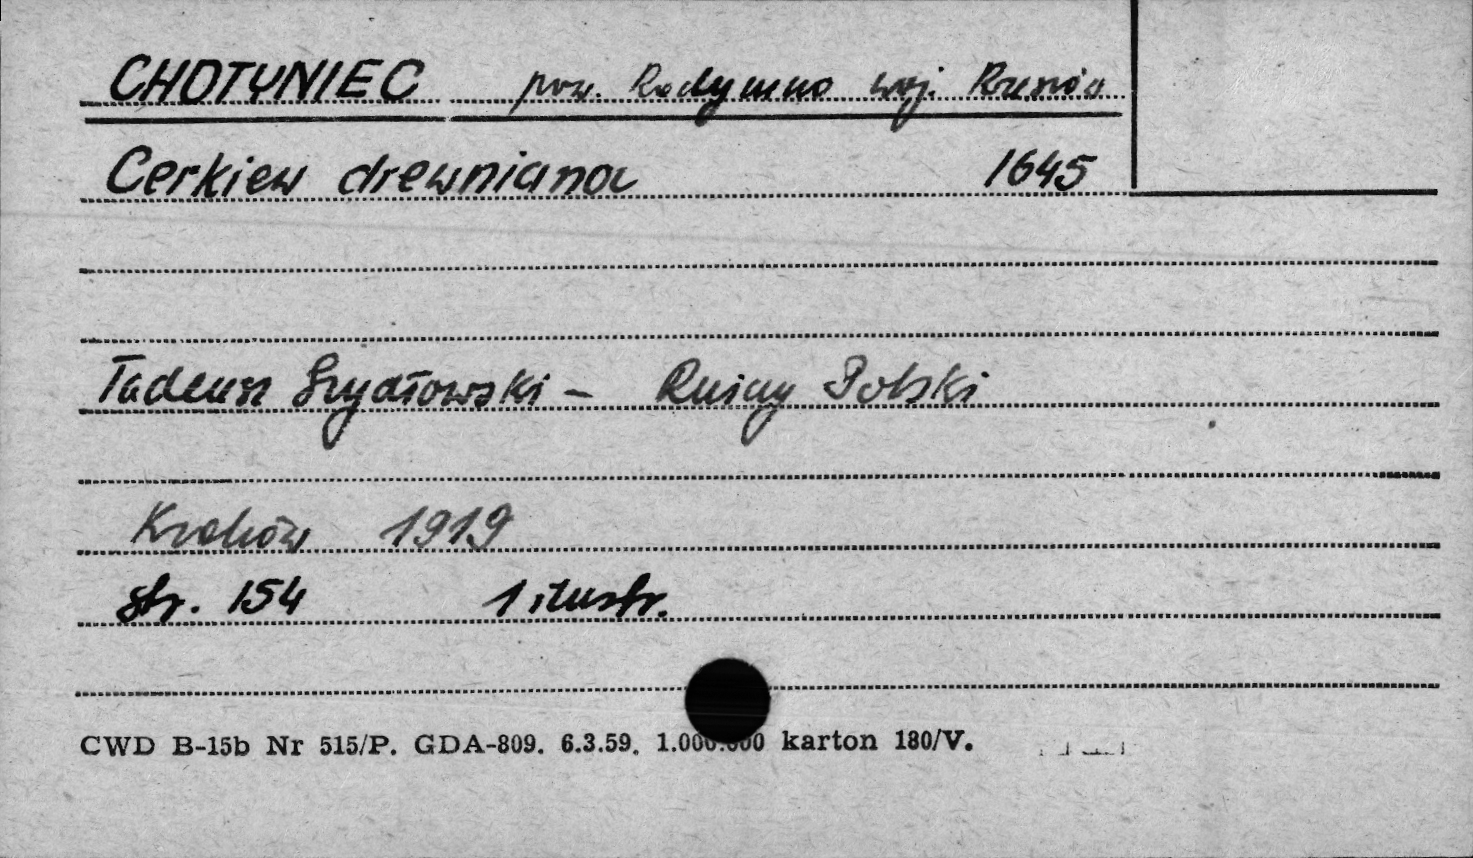 CHOTYNIEC pow. Radymno woj. Rzeszów
Cerkiew drewniana 1645
Tadeusz Szydłowski – Ruiny Polski
Kraków 1919
str. 154 1 ilustr.
CWD B-15b Nr 515/P. GDA-809. 6.3.59. 1.000.000 karton 180/V.